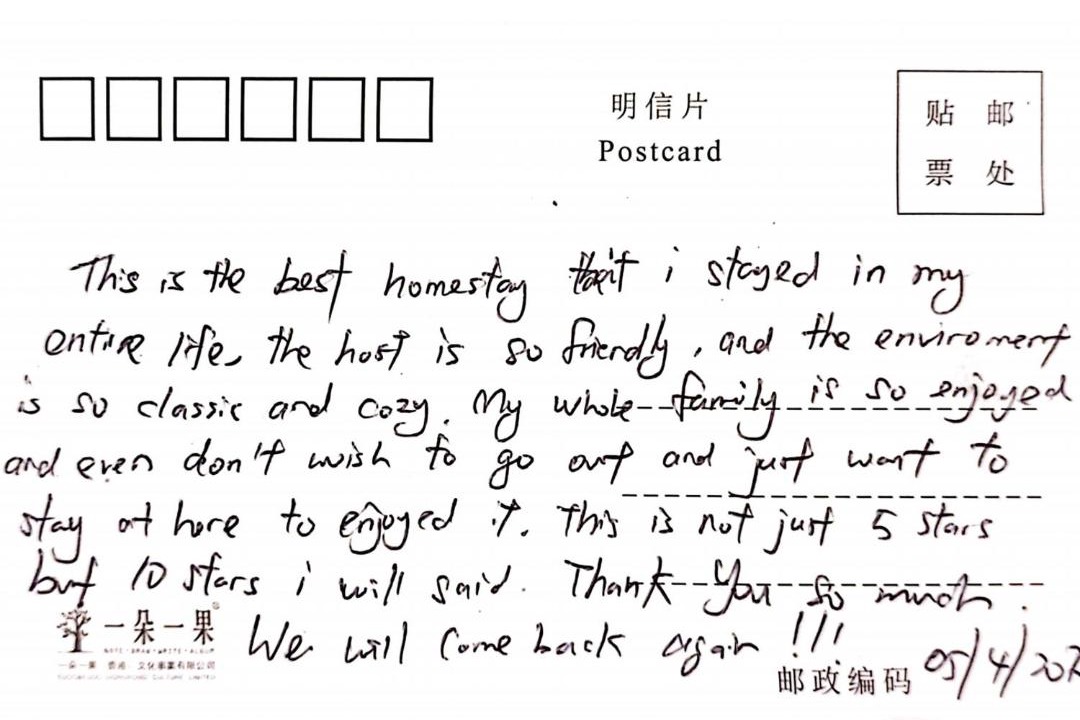 明信片
Postcard
贴 邮
票 处
This is the best homestay that i stayed in my
entire life, the host is so friendly, and the enviroment
is so classic and cozy. My whole family is so enjoyed
and even don't wish to go out and just want to
stay at here to enjoyed it. This is not just 5 stars
but 10 stars i will said. Thank you so much.
一朵一果
NOTE·DRAW·WRITE·ALBUM
一朵一果 香港 文化事業有限公司
We will come back again !!!
邮政编码 05/4/202